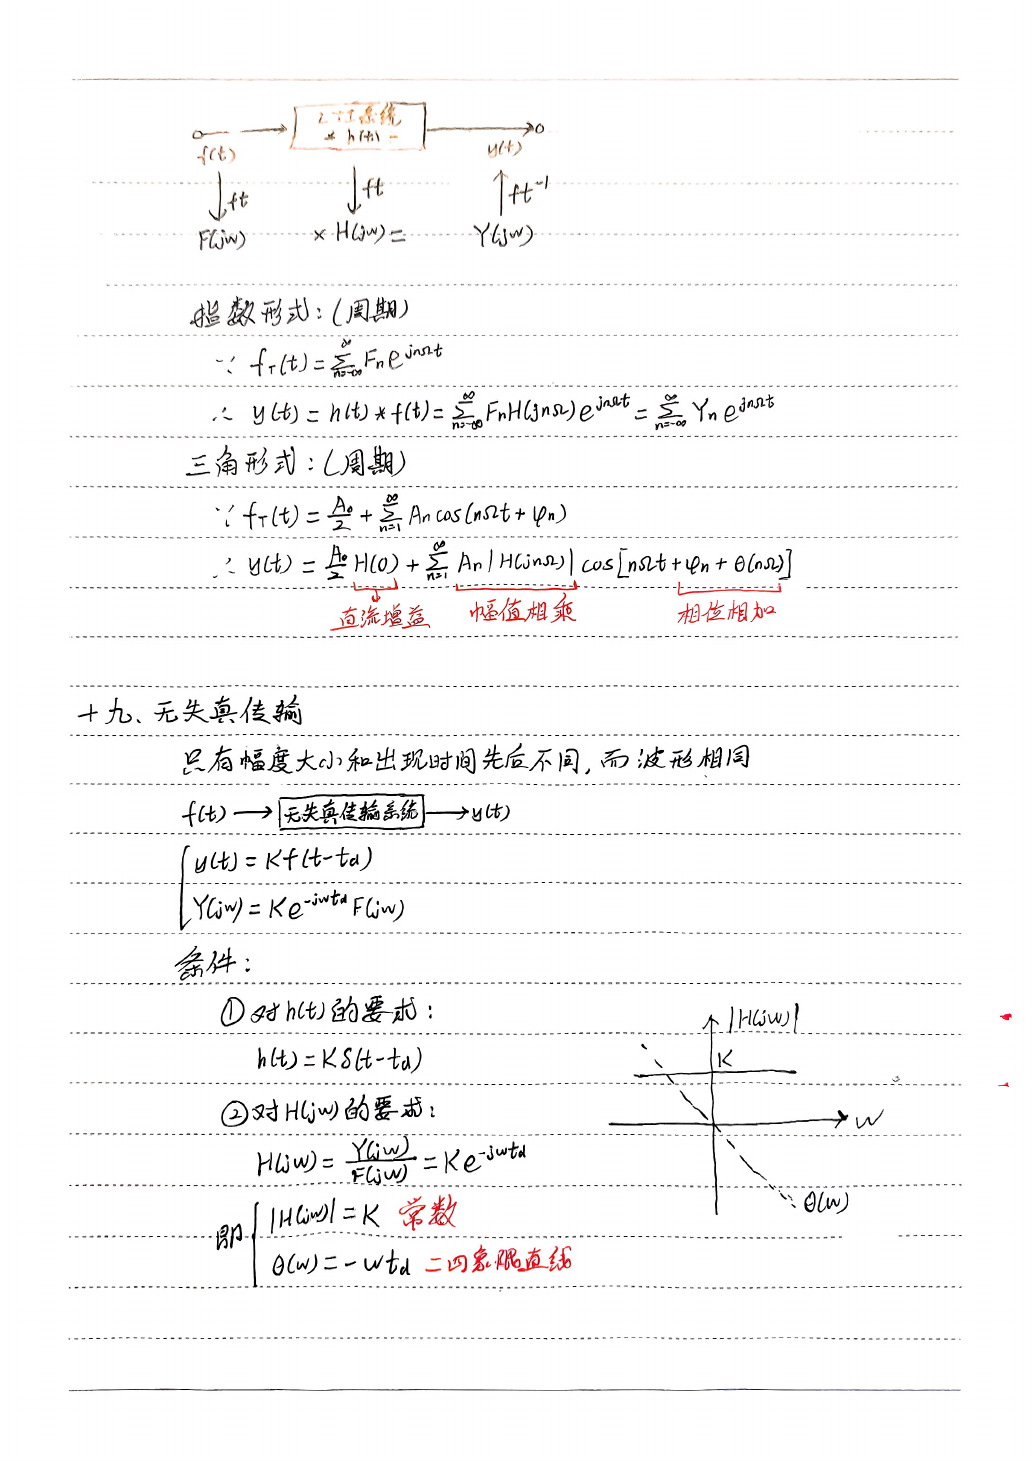 LTI系统
* h(t) =
f(t) y(t)
ft ft ft⁻¹
F(jw) × H(jw) = Y(jw)
指数形式:(周期)
∵ f_T(t) = ∑_{n=-∞}^{∞} F_n e^{jnΩt}
∴ y(t) = h(t) * f(t) = ∑_{n=-∞}^{∞} F_n H(jnΩ) e^{jnΩt} = ∑_{n=-∞}^{∞} Y_n e^{jnΩt}
三角形式:(周期)
∵ f_T(t) = A₀/2 + ∑_{n=1}^{∞} A_n cos(nΩt + φ_n)
∴ y(t) = A₀/2 H(0) + ∑_{n=1}^{∞} A_n |H(jnΩ)| cos[nΩt + φ_n + θ(nΩ)]
直流增益 幅值相乘 相位相加
十九、无失真传输
只有幅度大小和出现时间先后不同,而波形相同
f(t) → 无失真传输系统 → y(t)
y(t) = K f(t-t_d)
Y(jw) = K e^{-jwt_d} F(jw)
条件:
① 对h(t)的要求:
h(t) = Kδ(t-t_d)
② 对H(jw)的要求:
H(jw) = Y(jw)/F(jw) = K e^{-jwt_d}
即 |H(jw)| = K 常数
θ(w) = -wt_d 二四象限直线
|H(jw)|
K
w
θ(w)